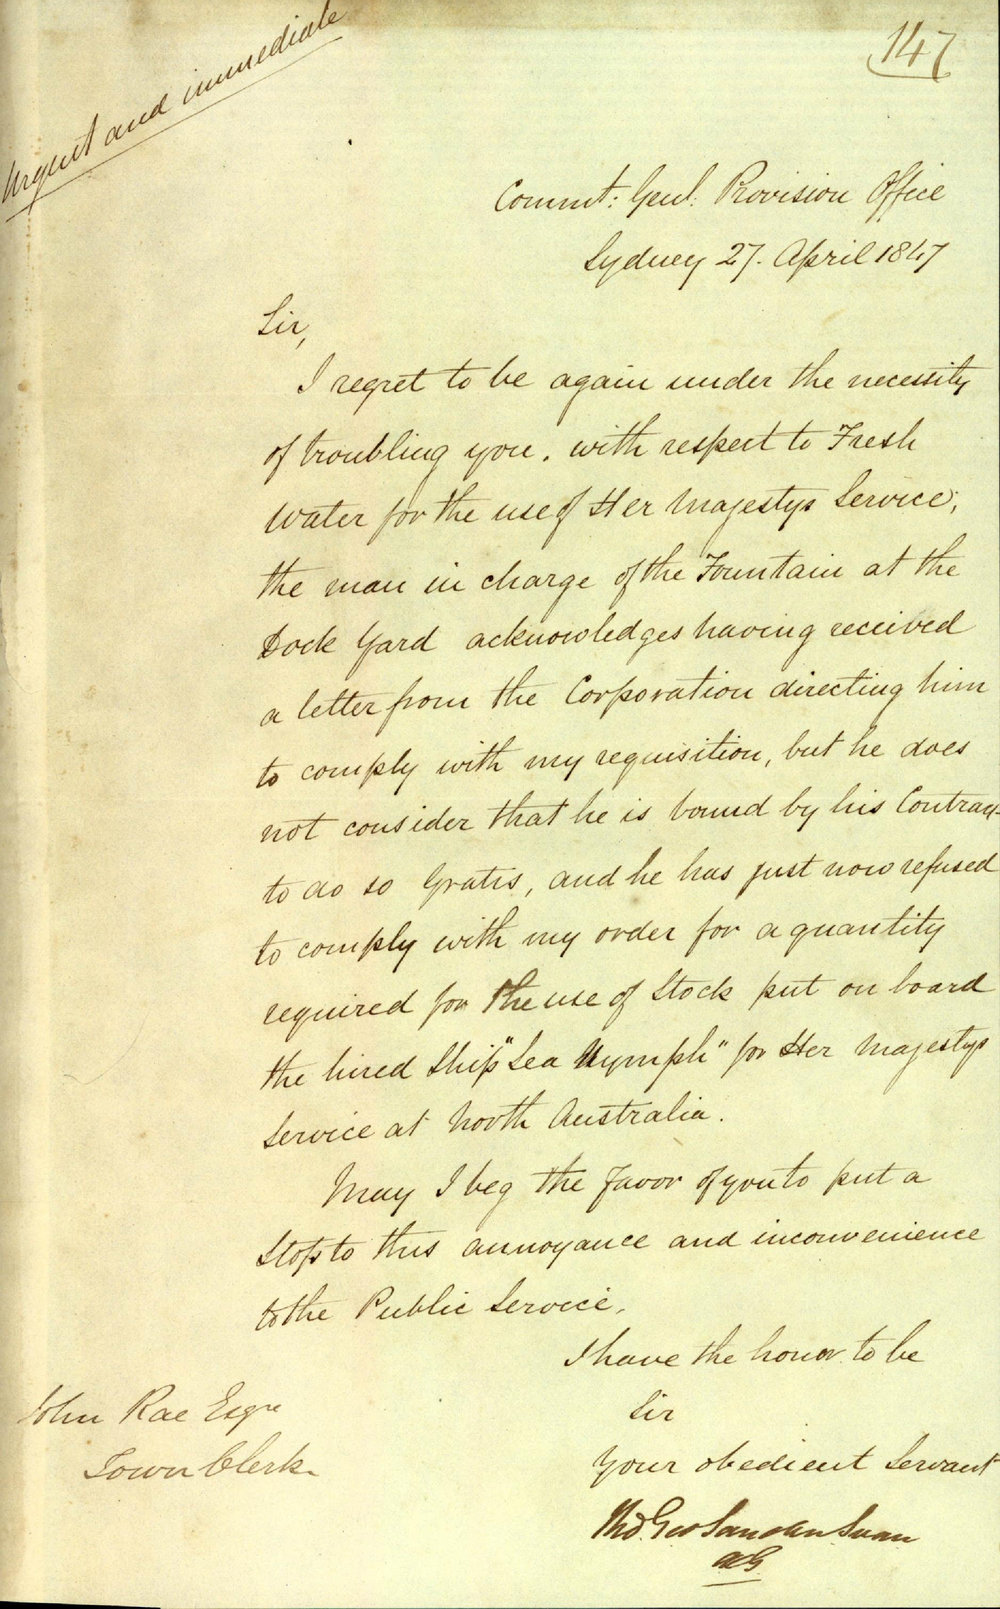 Urgent and immediate
147
Commt: Genl: Provision Office
Sydney 27. April 1847
Sir,
I regret to be again under the necessity
of troubling you. with respect to Fresh
Water for the use of Her Majestys Service;
the man in charge of the Fountain at the
Dock Yard acknowledges having received
a letter from the Corporation directing him
to comply with my requisition, but he does
not consider that he is bound by his Contract
to do so Gratis, and he has just now refused
to comply with my order for a quantity
required for the use of Stock put on board
the hired Ship "Sea Nymph" for Her Majestys
Service at North Australia.
May I beg the favor of you to put a
Stop to this annoyance and inconvenience
to the Public Service.
I have the honor to be
Sir
Your obedient Servant
John Rae Esqre
Town Clerk